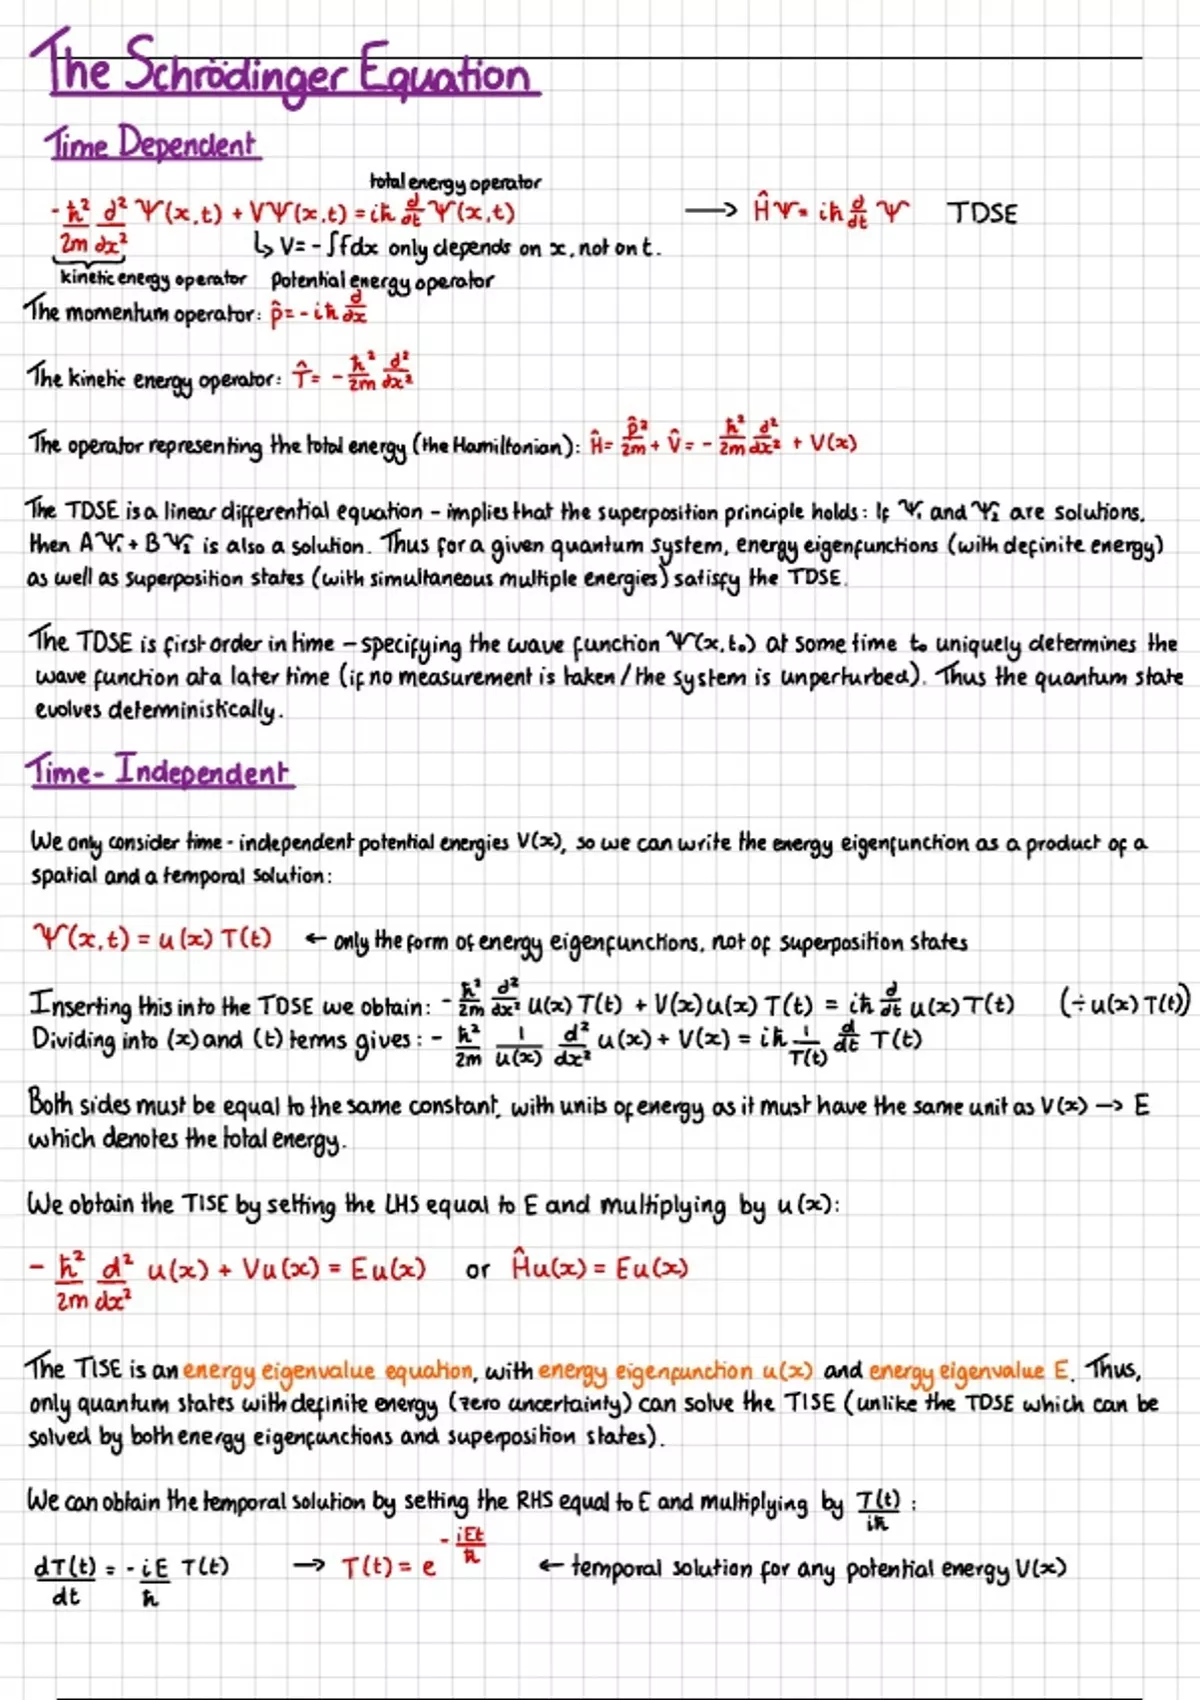 The Schrödinger Equation
Time Dependent
total energy operator
-ħ²/2m d²/dx² Ψ(x,t) + VΨ(x,t) = iħ d/dt Ψ(x,t) → ĤΨ = iħ d/dt Ψ TDSE
↳ V = -∫fdx only depends on x, not on t.
kinetic energy operator Potential energy operator
The momentum operator: p̂ = -iħ d/dx
The kinetic energy operator: T̂ = -ħ²/2m d²/dx²
The operator representing the total energy (the Hamiltonian): Ĥ = p̂²/2m + V̂ = -ħ²/2m d²/dx² + V(x)
The TDSE is a linear differential equation - implies that the superposition principle holds: If Ψ₁ and Ψ₂ are solutions,
then AΨ₁ + BΨ₂ is also a solution. Thus for a given quantum system, energy eigenfunctions (with definite energy)
as well as superposition states (with simultaneous multiple energies) satisfy the TDSE.
The TDSE is first order in time - specifying the wave function Ψ(x,t₀) at some time t₀ uniquely determines the
wave function at a later time (if no measurement is taken / the system is unperturbed). Thus the quantum state
evolves deterministically.
Time-Independent
We only consider time-independent potential energies V(x), so we can write the energy eigenfunction as a product of a
spatial and a temporal solution:
Ψ(x,t) = u(x) T(t) ← only the form of energy eigenfunctions, not of superposition states
Inserting this into the TDSE we obtain: -ħ²/2m d²/dx² u(x) T(t) + V(x)u(x) T(t) = iħ d/dt u(x) T(t) (÷ u(x) T(t))
Dividing into (x) and (t) terms gives: -ħ²/2m 1/u(x) d²/dx² u(x) + V(x) = iħ 1/T(t) d/dt T(t)
Both sides must be equal to the same constant, with units of energy as it must have the same unit as V(x) → E
which denotes the total energy.
We obtain the TISE by setting the LHS equal to E and multiplying by u(x):
-ħ²/2m d²/dx² u(x) + Vu(x) = Eu(x) or Ĥu(x) = Eu(x)
The TISE is an energy eigenvalue equation, with energy eigenfunction u(x) and energy eigenvalue E. Thus,
only quantum states with definite energy (zero uncertainty) can solve the TISE (unlike the TDSE which can be
solved by both energy eigenfunctions and superposition states).
We can obtain the temporal solution by setting the RHS equal to E and multiplying by T(t)/iħ :
dT(t)/dt = -iE/ħ T(t) → T(t) = e^(-iEt/ħ) ← temporal solution for any potential energy V(x)